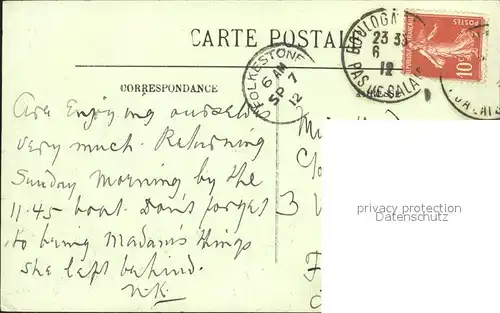 CARTE POSTALE
BOULOGNE
23 35
6
12
PAS DE CALAIS
POSTES
REPUBLIQUE FRANÇAISE
10c
FOLKESTONE
6 AM
SP 7
12
CORRESPONDANCE
Are Enjoying ourselves
very much. Returning
Sunday Morning by the
11.45 boat. Don't forget
to bring Madam's things
she left behind.
N.K.
C/o
3
privacy protection
Datenschutz